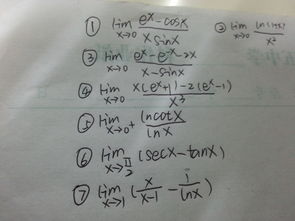 ① lim x→0 (e^x - cosx)/(x sinx) ② lim x→0 (ln(1+x))/x²
③ lim x→0 (e^x - e^-x - 2x)/(x - sinx)
④ lim x→0 (x(e^x+1) - 2(e^x-1))/x³
⑤ lim x→0+ (lncotx)/(lnx)
⑥ lim x→π/2 (secx - tanx)
⑦ lim x→1 (x/(x-1) - 1/(lnx))